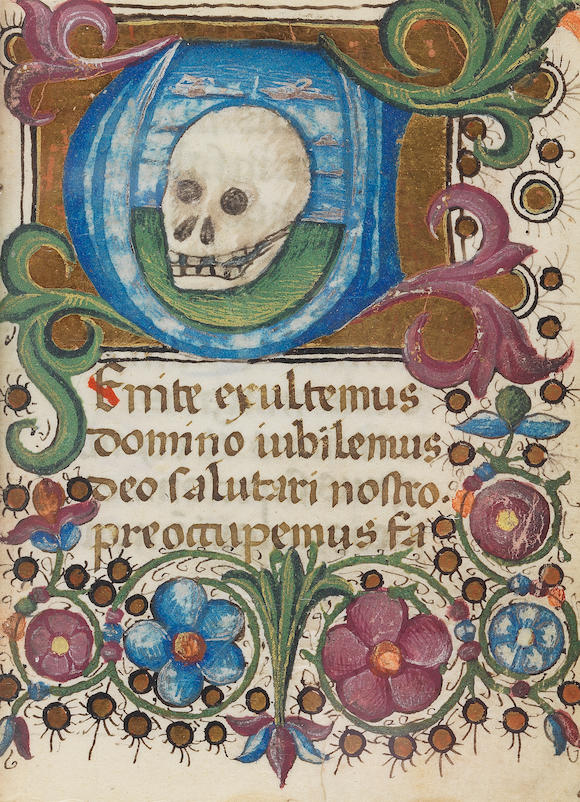 VEnite exultemus
domino iubilemus
deo salutari nostro.
preoccupemus fa